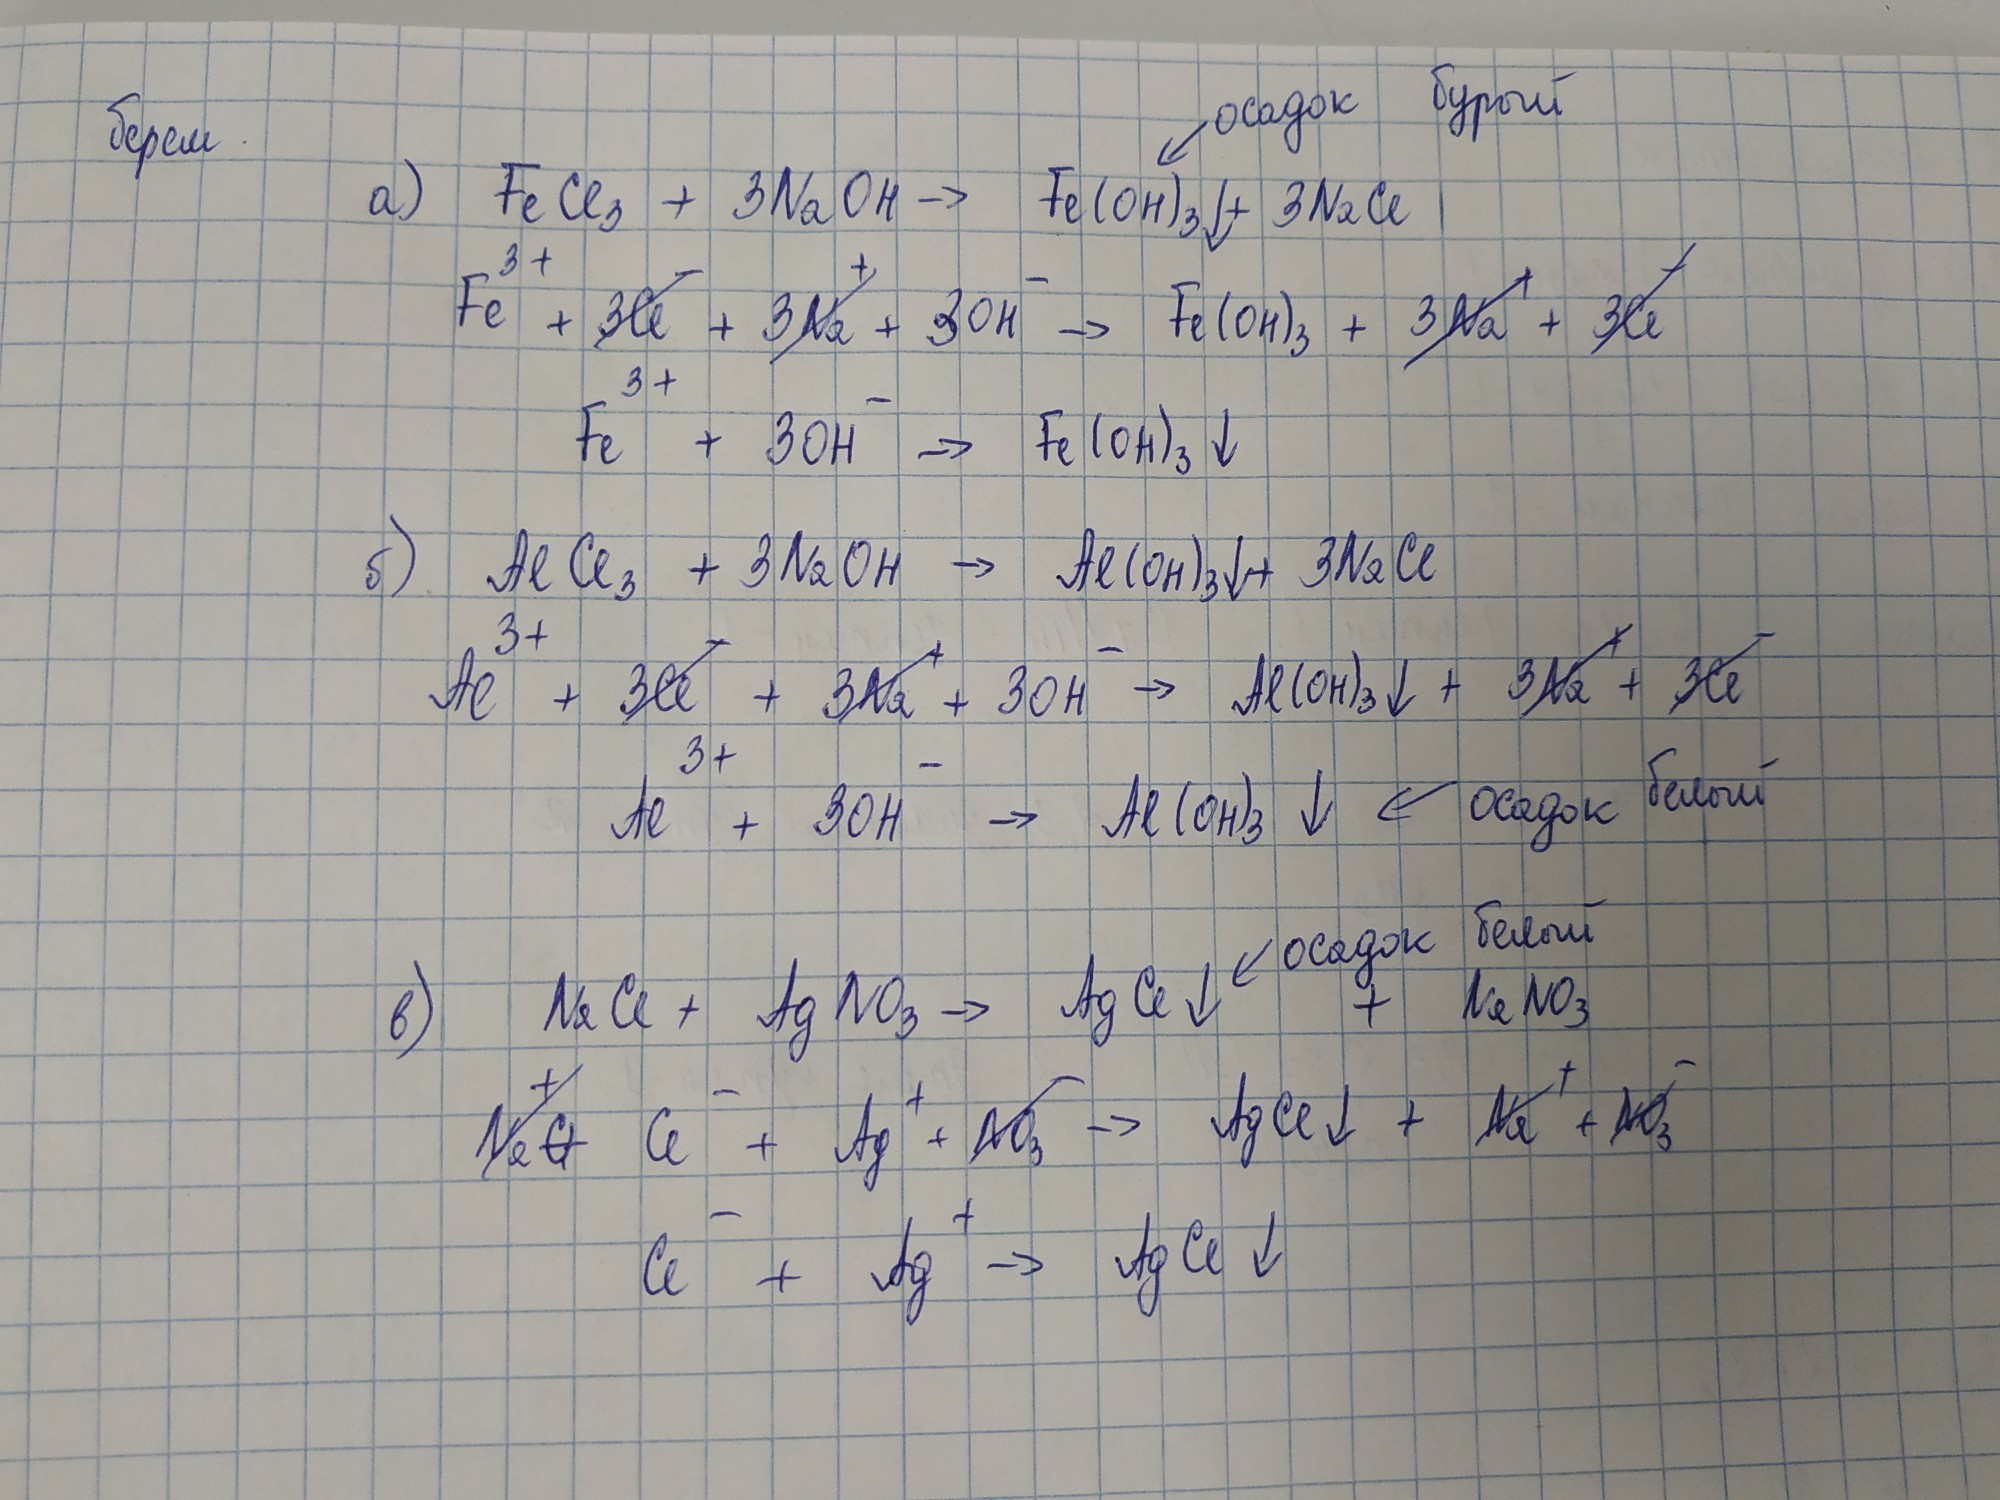 осадок бурый
берем.
а) FeCl₃ + 3NaOH → Fe(OH)₃↓ + 3NaCl
Fe³⁺ + 3Cl⁻ + 3Na⁺ + 3OH⁻ → Fe(OH)₃ + 3Na⁺ + 3Cl⁻
Fe³⁺ + 3OH⁻ → Fe(OH)₃↓
б) AlCl₃ + 3NaOH → Al(OH)₃↓ + 3NaCl
Al³⁺ + 3Cl⁻ + 3Na⁺ + 3OH⁻ → Al(OH)₃↓ + 3Na⁺ + 3Cl⁻
Al³⁺ + 3OH⁻ → Al(OH)₃↓ ← осадок белый
← осадок белый
в) NaCl + AgNO₃ → AgCl↓ + NaNO₃
Na⁺ + Cl⁻ + Ag⁺ + NO₃⁻ → AgCl↓ + Na⁺ + NO₃⁻
Cl⁻ + Ag⁺ → AgCl↓